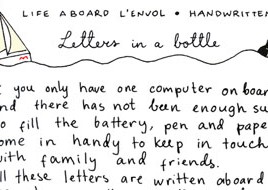 LIFE ABOARD L'ENVOL • HANDWRITTEN
Letters in a bottle
you only have one computer on board
and there has not been enough su
to fill the battery, pen and pape
ome in handy to keep in touch
with family and friends.
ll these letters are written aboard